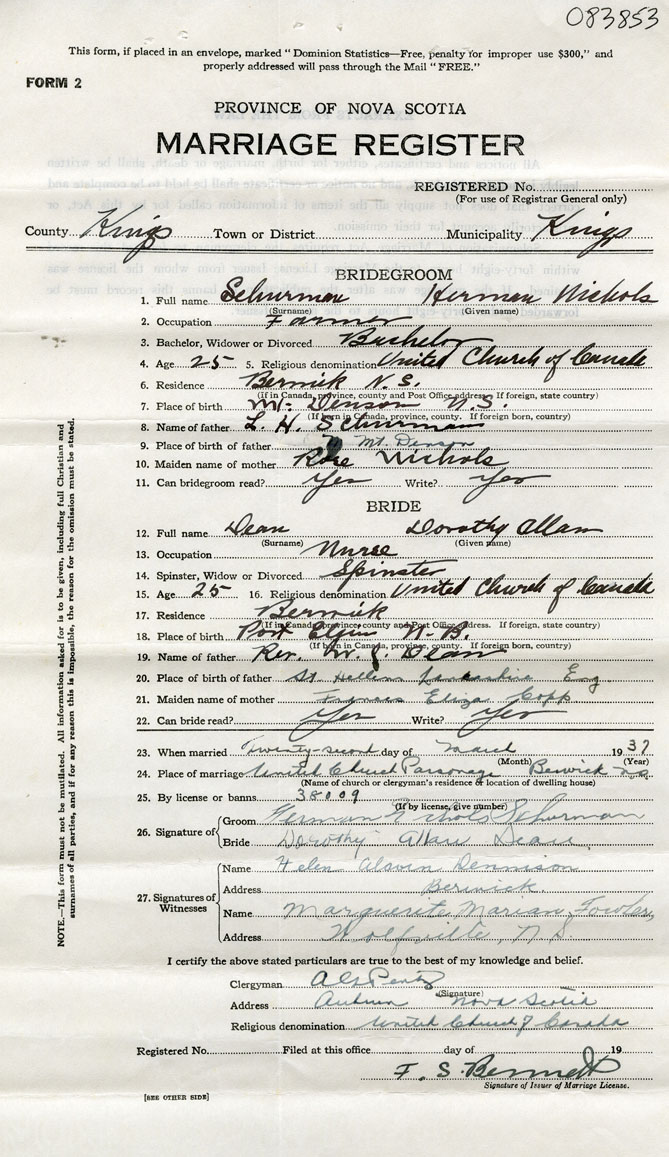 083853
This form, if placed in an envelope, marked "Dominion Statistics—Free, penalty for improper use $300," and
properly addressed will pass through the Mail "FREE."
FORM 2
PROVINCE OF NOVA SCOTIA
MARRIAGE REGISTER
REGISTERED No.
(For use of Registrar General only)
County Kings Town or District Municipality Kings
BRIDEGROOM
1. Full name Schurman Herman Nichols
(Surname) (Given name)
2. Occupation Farmer
3. Bachelor, Widower or Divorced Bachelor
4. Age 25 5. Religious denomination United Church of Canada
6. Residence Berwick N.S.
(If in Canada, province, county and Post Office address. If foreign, state country)
7. Place of birth Mt. Denson N.S.
(If born in Canada, province, county. If foreign born, country)
8. Name of father L. H. Schurman
9. Place of birth of father Mt. Denson
10. Maiden name of mother Rose Nichols
11. Can bridegroom read? Yes Write? Yes
BRIDE
12. Full name Dean Dorothy Allan
(Surname) (Given name)
13. Occupation Nurse
14. Spinster, Widow or Divorced Spinster
15. Age 25 16. Religious denomination United Church of Canada
17. Residence Berwick
(If in Canada, province, county and Post Office address. If foreign, state country)
18. Place of birth Port Elgin N.B.
(If born in Canada, province, county. If foreign born, country)
19. Name of father Rev. W. J. Dean
20. Place of birth of father St. Hellens Lancashire Eng
21. Maiden name of mother Frances Eliza Copp
22. Can bride read? Yes Write? Yes
23. When married Twenty-second day of March 1937
(Month) (Year)
24. Place of marriage United Church Parsonage Berwick N.S.
(Name of church or clergyman's residence or location of dwelling house)
25. By license or banns 38009
(If by license, give number)
26. Signature of
Groom Herman Nichols Schurman
Bride Dorothy Allan Dean
27. Signatures of Witnesses
Name Helen Dennison
Address Berwick
Name Marguerite Marian Fowler
Address Wolfville, N.S.
I certify the above stated particulars are true to the best of my knowledge and belief.
Clergyman
(Signature)
Address Auburn Nova Scotia
Religious denomination United Church of Canada
Registered No. Filed at this office day of 19
F. S. Bennett
Signature of Issuer of Marriage License.
[SEE OTHER SIDE]
NOTE.—This form must not be mutilated. All information asked for is to be given, including full Christian and
surnames of all parties, and if for any reason this is impossible, the reason for the omission must be stated.